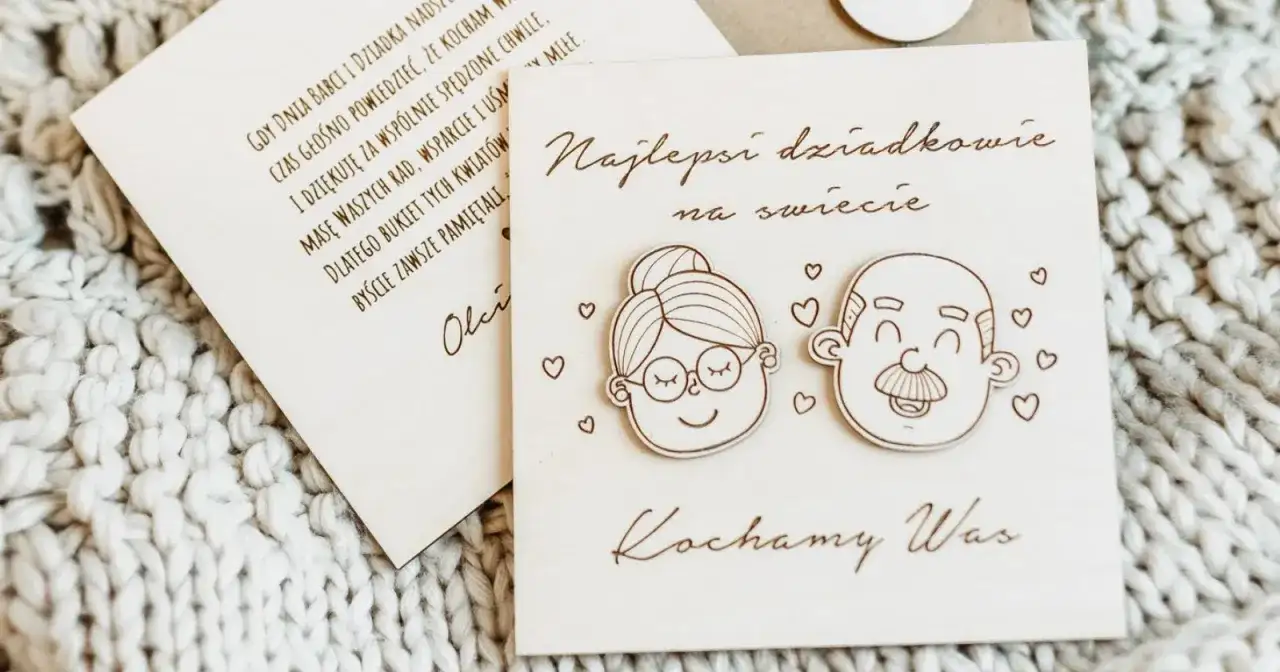 GDY DNIA BABCI I DZIADKA
CZAS GŁOŚNO POWIEDZIEĆ, ŻE KOCHAM
I DZIĘKUJĘ ZA WSPÓLNIE SPĘDZONE CHWILE,
MASĘ WASZYCH RAD, WSPARCIE I MIŁE.
DLATEGO BUKIET TYCH KWIATÓW
BYŚCIE ZAWSZE PAMIĘTALI,
Najlepsi dziadkowie
na swiecie
Kochamy Was